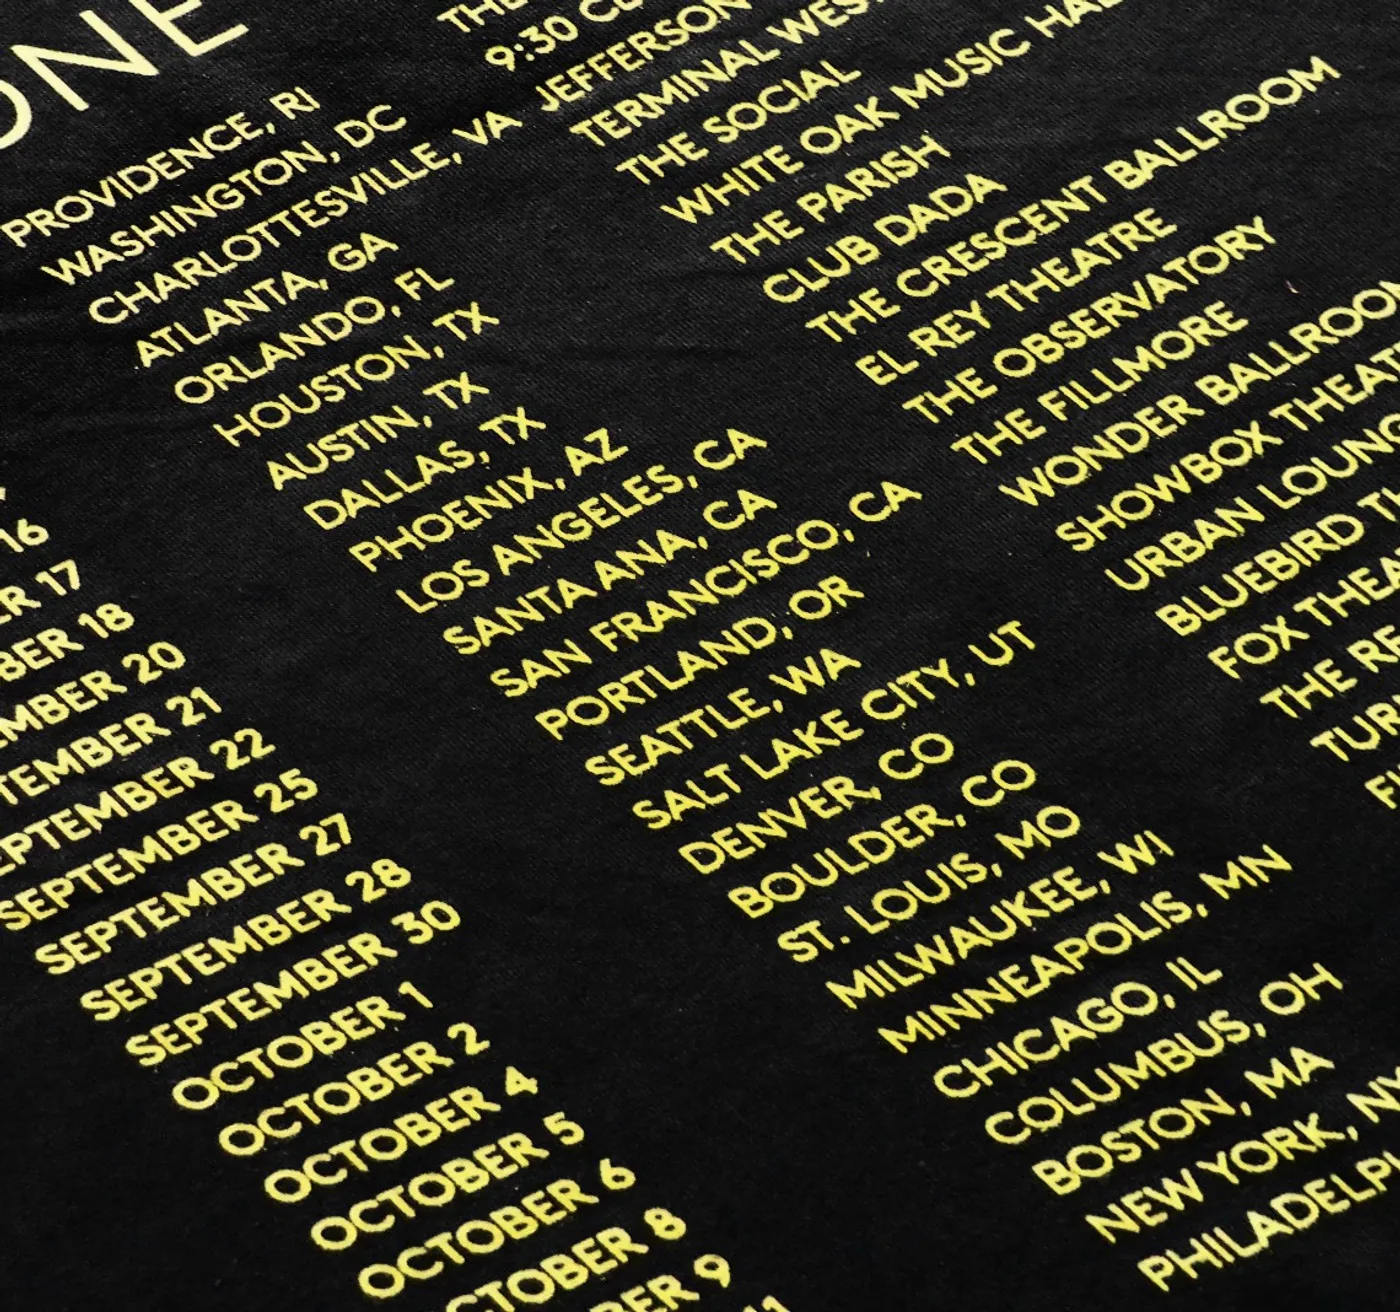 ONE
PROVIDENCE, RI THE
WASHINGTON, DC 9:30
CHARLOTTESVILLE, VA JEFFERSON
ATLANTA, GA TERMINAL WEST
ORLANDO, FL THE SOCIAL
16 HOUSTON, TX WHITE OAK MUSIC HAL
17 AUSTIN, TX THE PARISH
BER 18 DALLAS, TX CLUB DADA
EMBER 20 PHOENIX, AZ THE CRESCENT BALLROOM
TEMBER 21 LOS ANGELES, CA EL REY THEATRE
EPTEMBER 22 SANTA ANA, CA THE OBSERVATORY
SEPTEMBER 25 SAN FRANCISCO, CA THE FILLMORE
SEPTEMBER 27 PORTLAND, OR WONDER BALLROOM
SEPTEMBER 28 SEATTLE, WA SHOWBOX THEAT
SEPTEMBER 30 SALT LAKE CITY, UT URBAN LOUNG
OCTOBER 1 DENVER, CO BLUEBIRD TH
OCTOBER 2 BOULDER, CO FOX THEA
OCTOBER 4 ST. LOUIS, MO THE RE
OCTOBER 5 MILWAUKEE, WI TUR
OCTOBER 6 MINNEAPOLIS, MN
CTOBER 8 CHICAGO, IL
BER 9 COLUMBUS, OH
11 BOSTON, MA
NEW YORK, NY
PHILADELP